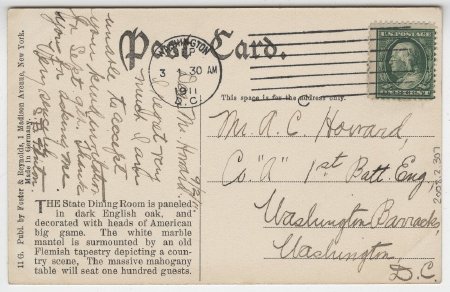 Post Card.
WASHINGTON
SEP
3 1 30 AM
1911
D.C.
U.S. POSTAGE
This space is for the address only.
9/2/11
Mr. Howard,
I regret very
much I am
unable to accept
your kind invitation
for Sept. 9th. Thank
you for asking me.
Very sincerely
Mr. A. C. Howard,
Co. "A" 1st Batt. Eng.
Washington Barracks,
Washington,
D.C.
THE State Dining Room is paneled
in dark English oak, and
decorated with heads of American
big game. The white marble
mantel is surmounted by an old
Flemish tapestry depicting a coun-
try scene, The massive mahogany
table will seat one hundred guests.
11 G. Publ. by Foster & Reynolds, 1 Madison Avenue, New York.
Made in Germany.